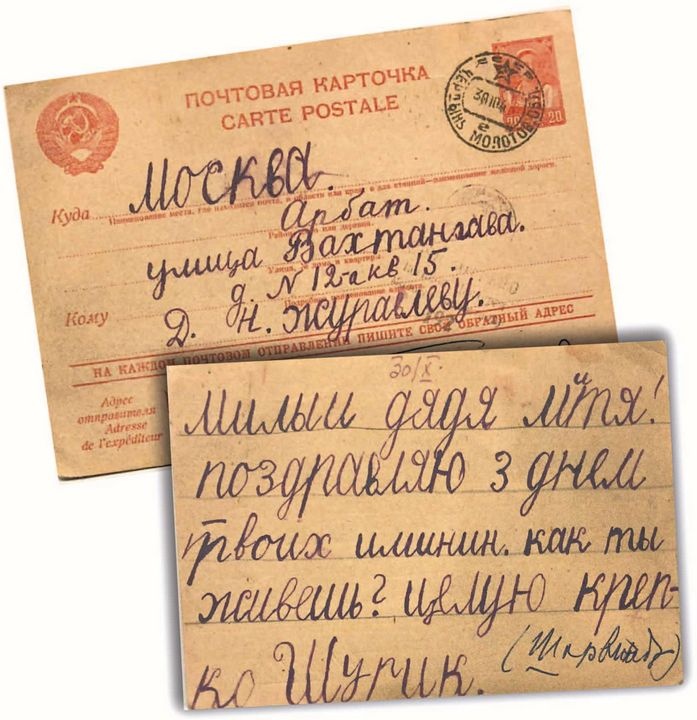 ПОЧТОВАЯ КАРТОЧКА
CARTE POSTALE
ЧЕРДЫНЬ МОЛОТОВ
20
Москва.
Куда
Наименование места, где находится почта, и области или края, а для станций—наименование железной дороги.
Арбат.
улица Вахтангава.
Улица, № дома и квартиры.
д. N 12-а кв 15.
Кому
Д. Н. Журавлеву.
НА КАЖДОМ ПОЧТОВОМ ОТПРАВЛЕНИИ ПИШИТЕ СВОЙ ОБРАТНЫЙ АДРЕС
Адрес
отправителя
Adresse
de l'expéditeur
30/X.
милыи дядя митя!
поздравляю з днем
твоих иминин. как ты
живешь? целую креп-
ко Шурик. (Ширвиндт)